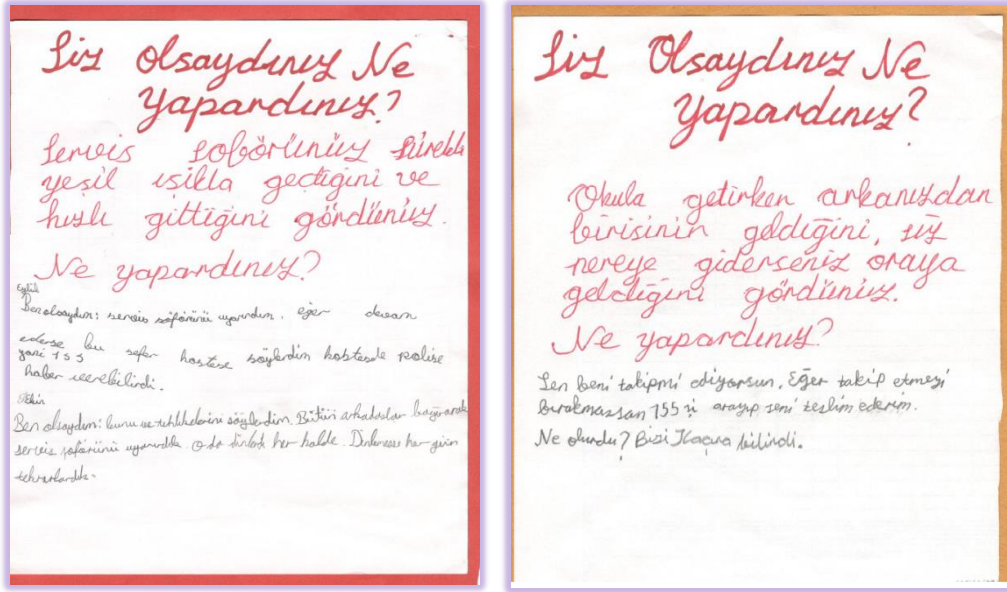 Siz Olsaydınız Ne
Yapardınız?
Servis soförünüz sürekli
yeşil ışıkla geçtiğini ve
hızlı gittiğini gördünüz.
Ne yapardınız?
Eylül
Ben olsaydım: servis şoförünü uyarırdım. eğer devam
ederse bu sefer hostese söylerdim hosteste polise
yani 155
haber verebilirdi.
Ben olsaydım: bunu ve tehlikelerini söylerdim. Bütün arkadaşlar bağırarak
servis şoförünü uyarırdık. O da dinlerdi her halde. Dinlemese her gün
tekrarlardık.
Siz Olsaydınız Ne
Yapardınız?
Okula getirken arkanızdan
birisinin geldiğini, siz
nereye giderseniz oraya
geldiğini gördünüz.
Ne yapardınız?
Sen beni takipmi ediyorsun. Eğer takip etmeyi
bırakmassan 155'i arayıp seni teslim ederim.
Ne olurdu? Bizi Kaçıra bilirdi.